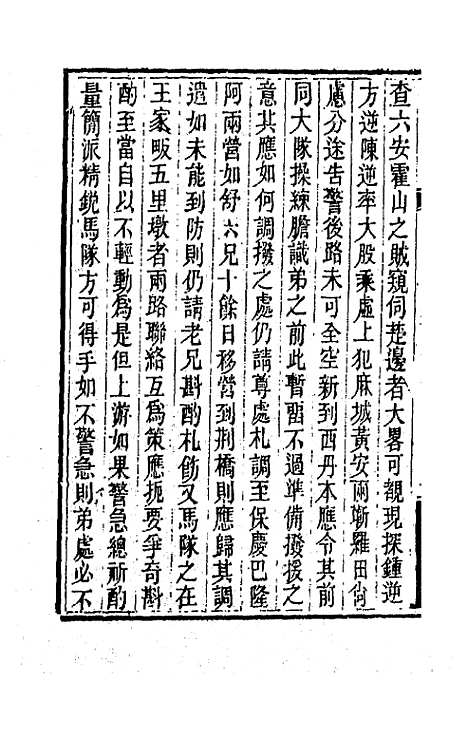 查六安霍山之賊窺伺楚邊者大畧可覩現探鍾逆
方逆陳逆率大股乘虛上犯麻城黃安兩蘄羅田尙
慮分途告警後路未可全空新到西丹本應令其前
同大隊操練膽識弟之前此暫畱不過準備撥援之
意其應如何調撥之處仍請尊處札調至保慶巴隆
阿兩營如舒六兄十餘日移營到荆橋則應歸其調
遣如未能到防則仍請老兄斟酌札飭又馬隊之在
王家畈五里墩者兩路聯絡互爲策應扼要爭奇斟
酌至當自以不輕動爲是但上游如果警急總祈酌
量簡派精銳馬隊方可得手如不警急則弟處必不